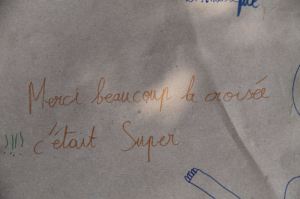 Merci beaucoup la croisée
!!! c'était Super